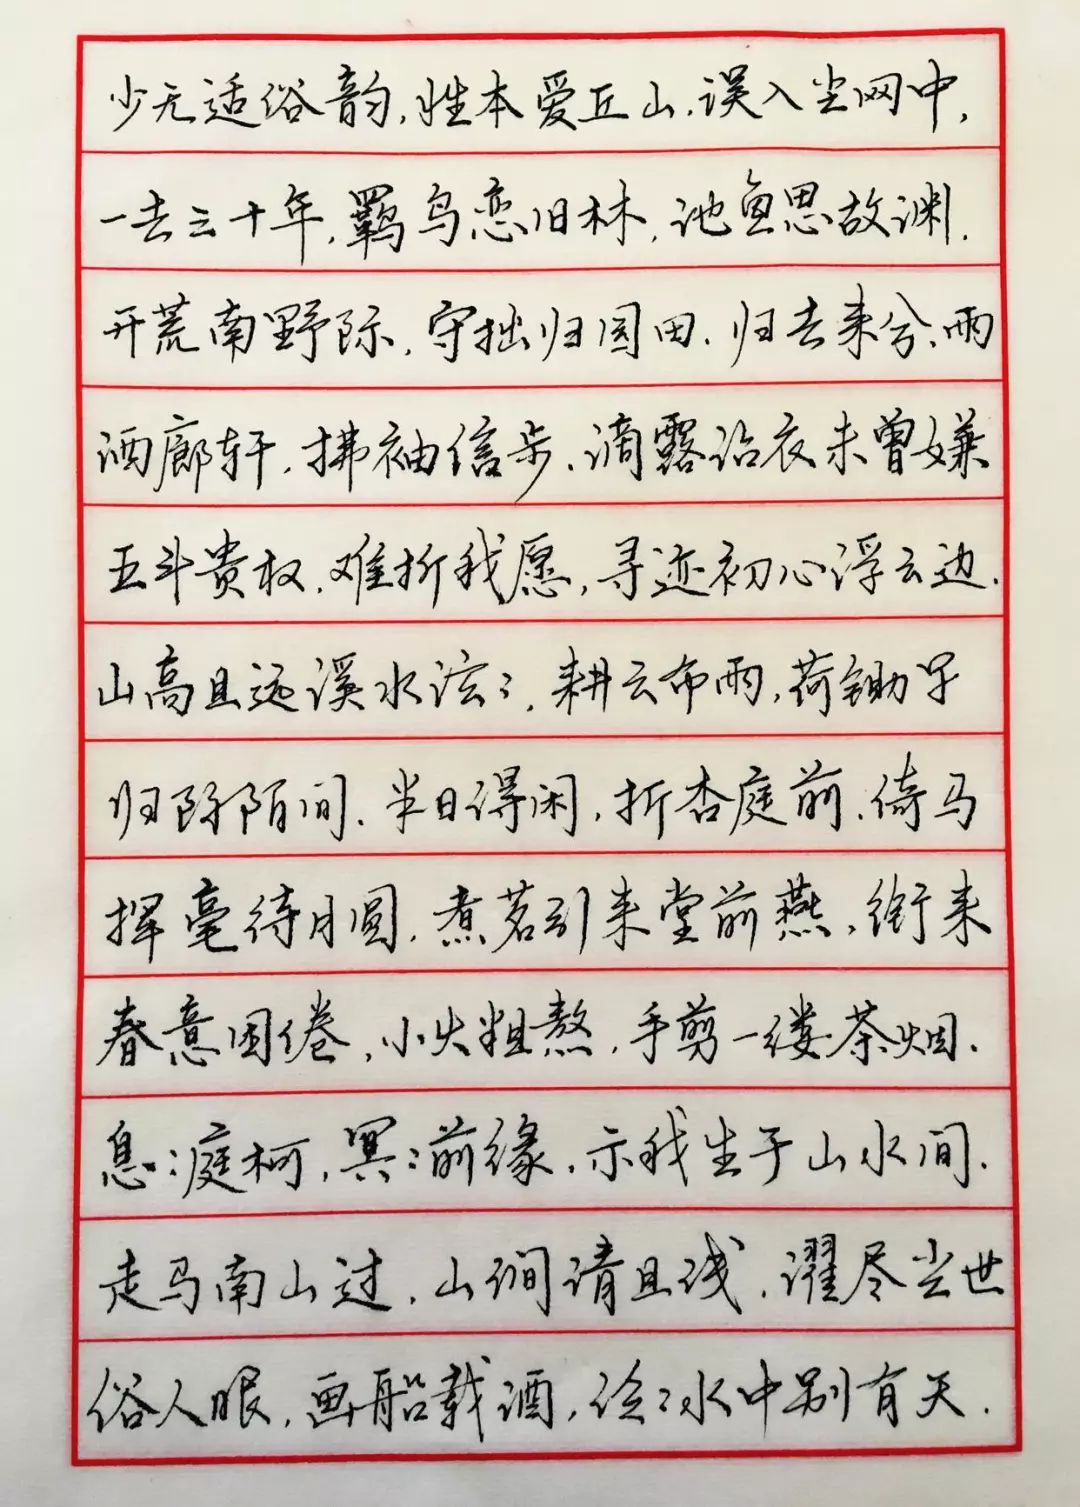 少无适俗韵,性本爱丘山,误入尘网中,
一去三十年,羁鸟恋旧林,池鱼思故渊.
开荒南野际,守拙归园田.归去来兮,雨
洒廊轩,拂袖信步,滴露沾衣未曾嫌
五斗贵权,难折我愿,寻迹初心浮云边.
山高且远溪水泫:,耕云布雨,荷锄早
归阡陌间.半日得闲,折杏庭前.倚马
挥毫待月圆,煮茗引来堂前燕,衔来
春意困倦,小火粗熬,手剪一缕茶烟.
息:庭柯,冥:前缘,示我生于山水间.
走马南山过,山涧清且浅,濯尽尘世
俗人眼,画船载酒,泠:水中别有天.